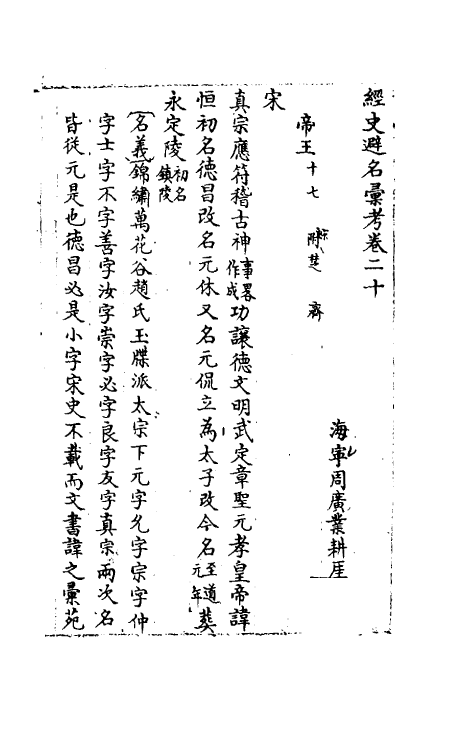 經史避名彙考卷二十
海寧周廣業耕厓
帝王十七 宋 附楚 齊
宋
真宗應符稽古神事畧作成功讓德文明武定章聖元孝皇帝諱
恒初名德昌改名元休又名元侃立為太子改今名至道元年葬
永定陵初名鎮陵
名義錦繡萬花谷趙氏玉牒派太宗下元字允字宗字仲
字士字不字善字汝字崇字必字良字友字真宗兩次名
皆從元是也德昌必是小字宋史不載而文書諱之彙苑